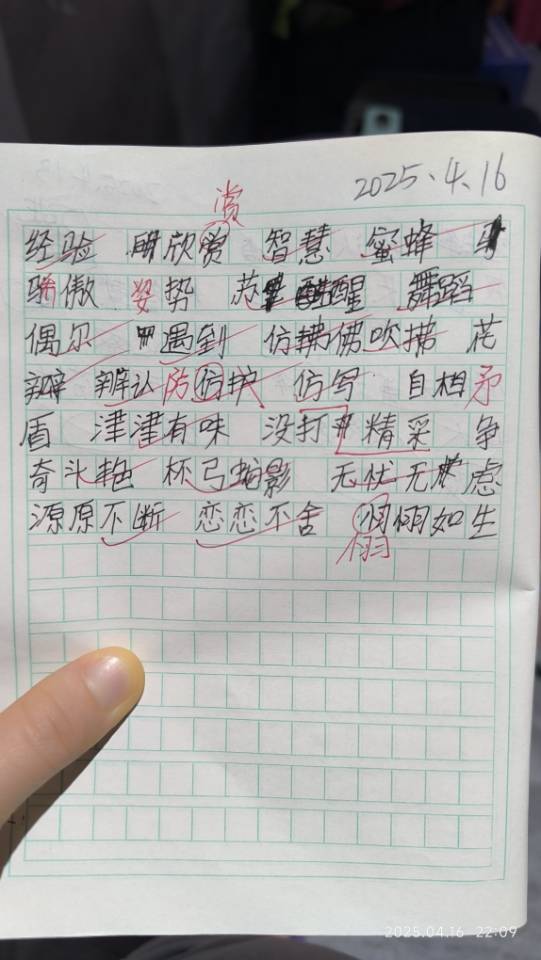 赏
2025.4.16
经验 欣赏 智慧 蜜蜂
骄傲 姿势 苏醒 舞蹈
偶尔 遇到 仿佛 吹拂 花
瓣 辨认 防护 仿写 自相矛
盾 津津有味 没打 精采 争
奇斗艳 杯弓蛇影 无忧无虑
源原不断 恋恋不舍 栩栩如生
栩
2025.04.16 22:09